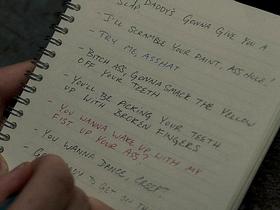 DADDY'S GONNA GIVE YOU A
SLAP
- I'LL SCRAMBLE YOUR PAINT, ASS HOLE
- TRY ME, ASSHAT
- BITCH ASS, GONNA SMACK THE YELLOW
OFF YOUR TEETH
- YOU'LL BE PICKING YOUR TEETH
UP WITH BROKEN FINGERS
- YOU WANNA WAKE UP WITH MY
FIST UP YOUR ASS?
- YOU WANNA DANCE, CREEP
GET ON